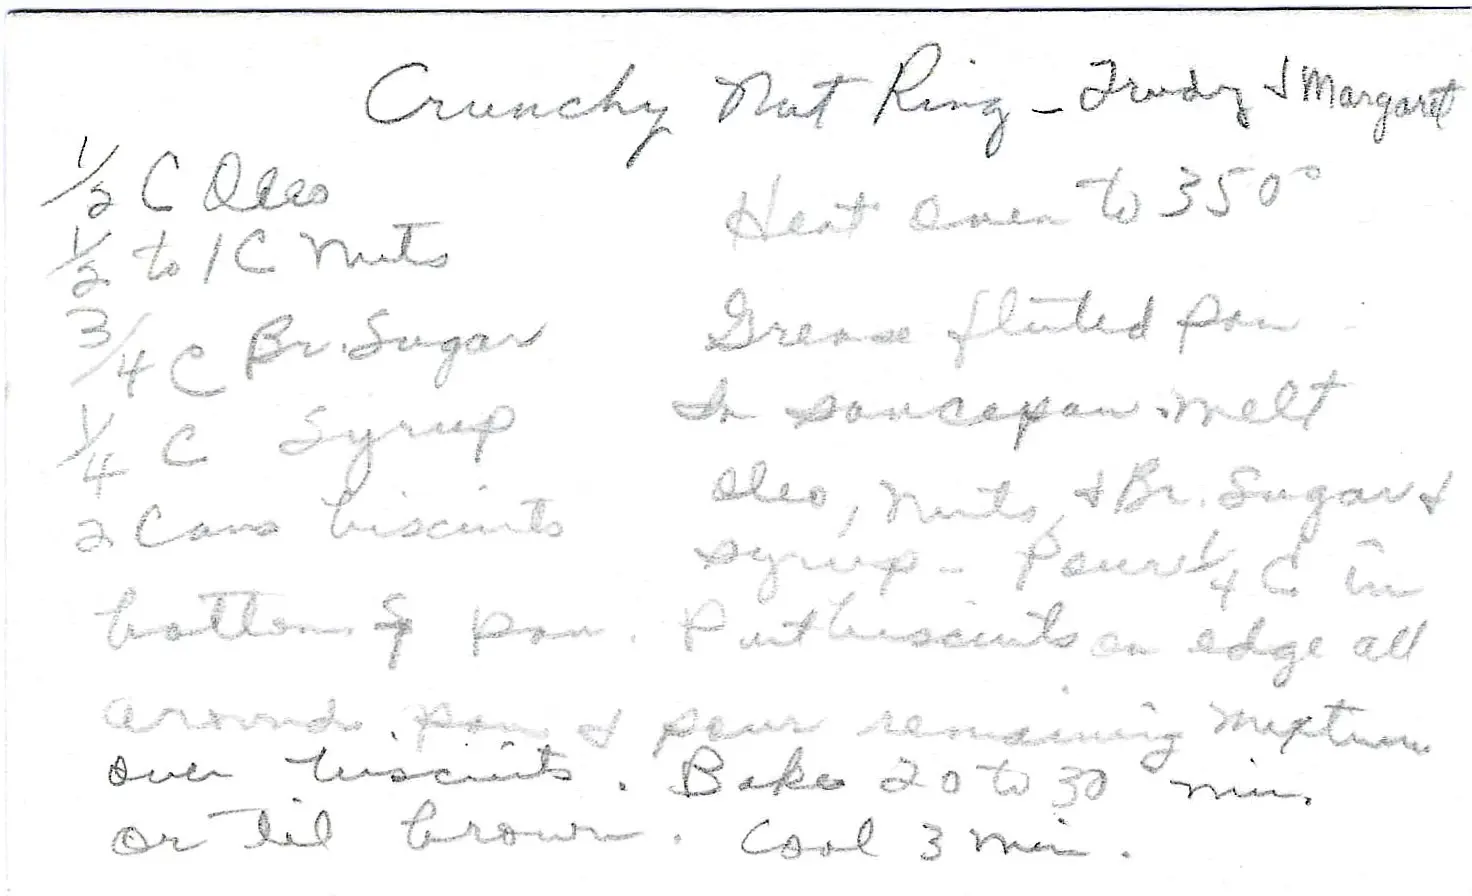 Crunchy Nut Ring - Trudy & Margaret
1/2 C Oleo
1/2 to 1 C Nuts
3/4 C Br. Sugar
1/4 C Syrup
2 Cans biscuits
Heat oven to 350°
Grease fluted pan
In saucepan melt
oleo, nuts, & Br. Sugar &
syrup - Pour 1/4 C in
bottom of pan. Put biscuits on edge all
around pan & pour remaining mixture
over biscuits. Bake 20 to 30 min.
or til brown. Cool 3 min.